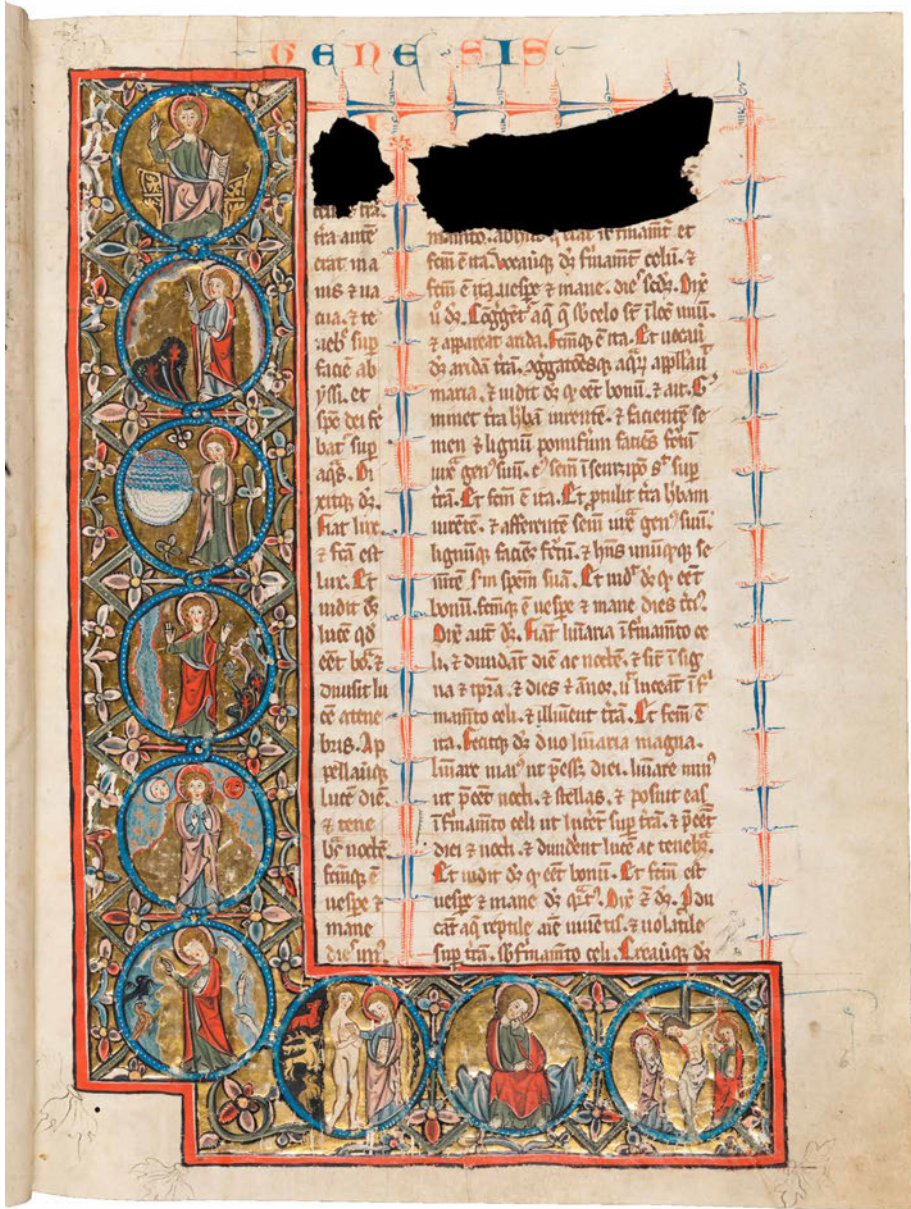 GENESIS
tr̄a.
tr̄a autē
erat ina
nis ⁊ ua
cua. ⁊ te
nebͬ sup
faciē ab
yssi. et
sp̄c dei fe
batʳ sup
aq̄s. Di
xitqꝫ ds̄.
Fiat lux.
⁊ fc̄a est
lux. Et
uidit ds̄
lucē qd̓
eēt bo̅. ⁊
diuisit lu
cē atene
bris. Ap
pellauitqꝫ
lucē diē.
⁊ tene
bͬs noctē
fcm̄qꝫ ē
uespe ⁊
mane
dieˢ unꝰ.
et
fcm̄ ē ita. Vocauitqꝫ ds̄ firmamt̄ celū. ⁊
fcm̄ ē ita. uespe ⁊ mane. dieˢ scd̄s. Dix̄
u̓ ds̄. Cōggētʳ aq̄ q̄ sb̓ celo st̄ ī locē unū
⁊ appareat arida. Fcm̄qꝫ ē ita. Et uocauͭ
ds̄ aridā tr̄a. ꝯggatōesqꝫ aqꝝ appllauͭ
maria. ⁊ uidit ds̄ ꝙ eēt bonū. ⁊ ait. Gͬ
minet tr̄a hb̓ā uirentē. ⁊ facientē se
men ⁊ lignū pomiferum faciēs fctū
iux̄ genꝰ suū. cꝰ sem̄ ī semetipo̅ sͭ sup
tr̄a. Et fcm̄ ē ita. Et ptulit tr̄a hb̓am
uirētē. ⁊ afferentē sem̄ iux̄ genꝰ suū.
lignūqꝫ faciēs fctū. ⁊ hn̄s unūqͩqꝫ se
mētē sm̄ spēm suā. Et uidͭ ds̄ ꝙ eēt
bonū. fcm̄qꝫ ē uespe ⁊ mane dies trꝰ.
Dix̄ aut̄ ds̄. Fiāt luīaria ī firmam̄to ce
li. ⁊ diuidāt diē ac noctē. ⁊ sīt ī sig
na ⁊ tp̄a. ⁊ dies ⁊ ānos. ut̄ luceāt ī fͥ
mam̄to celi. ⁊ illuīent tr̄a. Et fcm̄ ē
ita. Fecitqꝫ ds̄ duo luīaria magna.
luīare maiꝰ ut p̄eēt diei. luīare minꝰ
ut p̄eēt nocti. ⁊ stellas. ⁊ posuit eas
ī firmam̄to celi ut lucēt sup tr̄a. ⁊ p̄eēt
diei ⁊ nocti. ⁊ diuident lucē ac tenebͣs.
Et uidit ds̄ ꝙ eēt bonū. Et fcm̄ est
uespe ⁊ mane ds̄ qͣtꝰ. Dix̄ ⁊ ds̄. Pdu
cāt aq̄ reptile aīe uiuētis. ⁊ uolatile
sup tr̄a. sb̓ firmam̄to celi. Creauitqꝫ ds̄